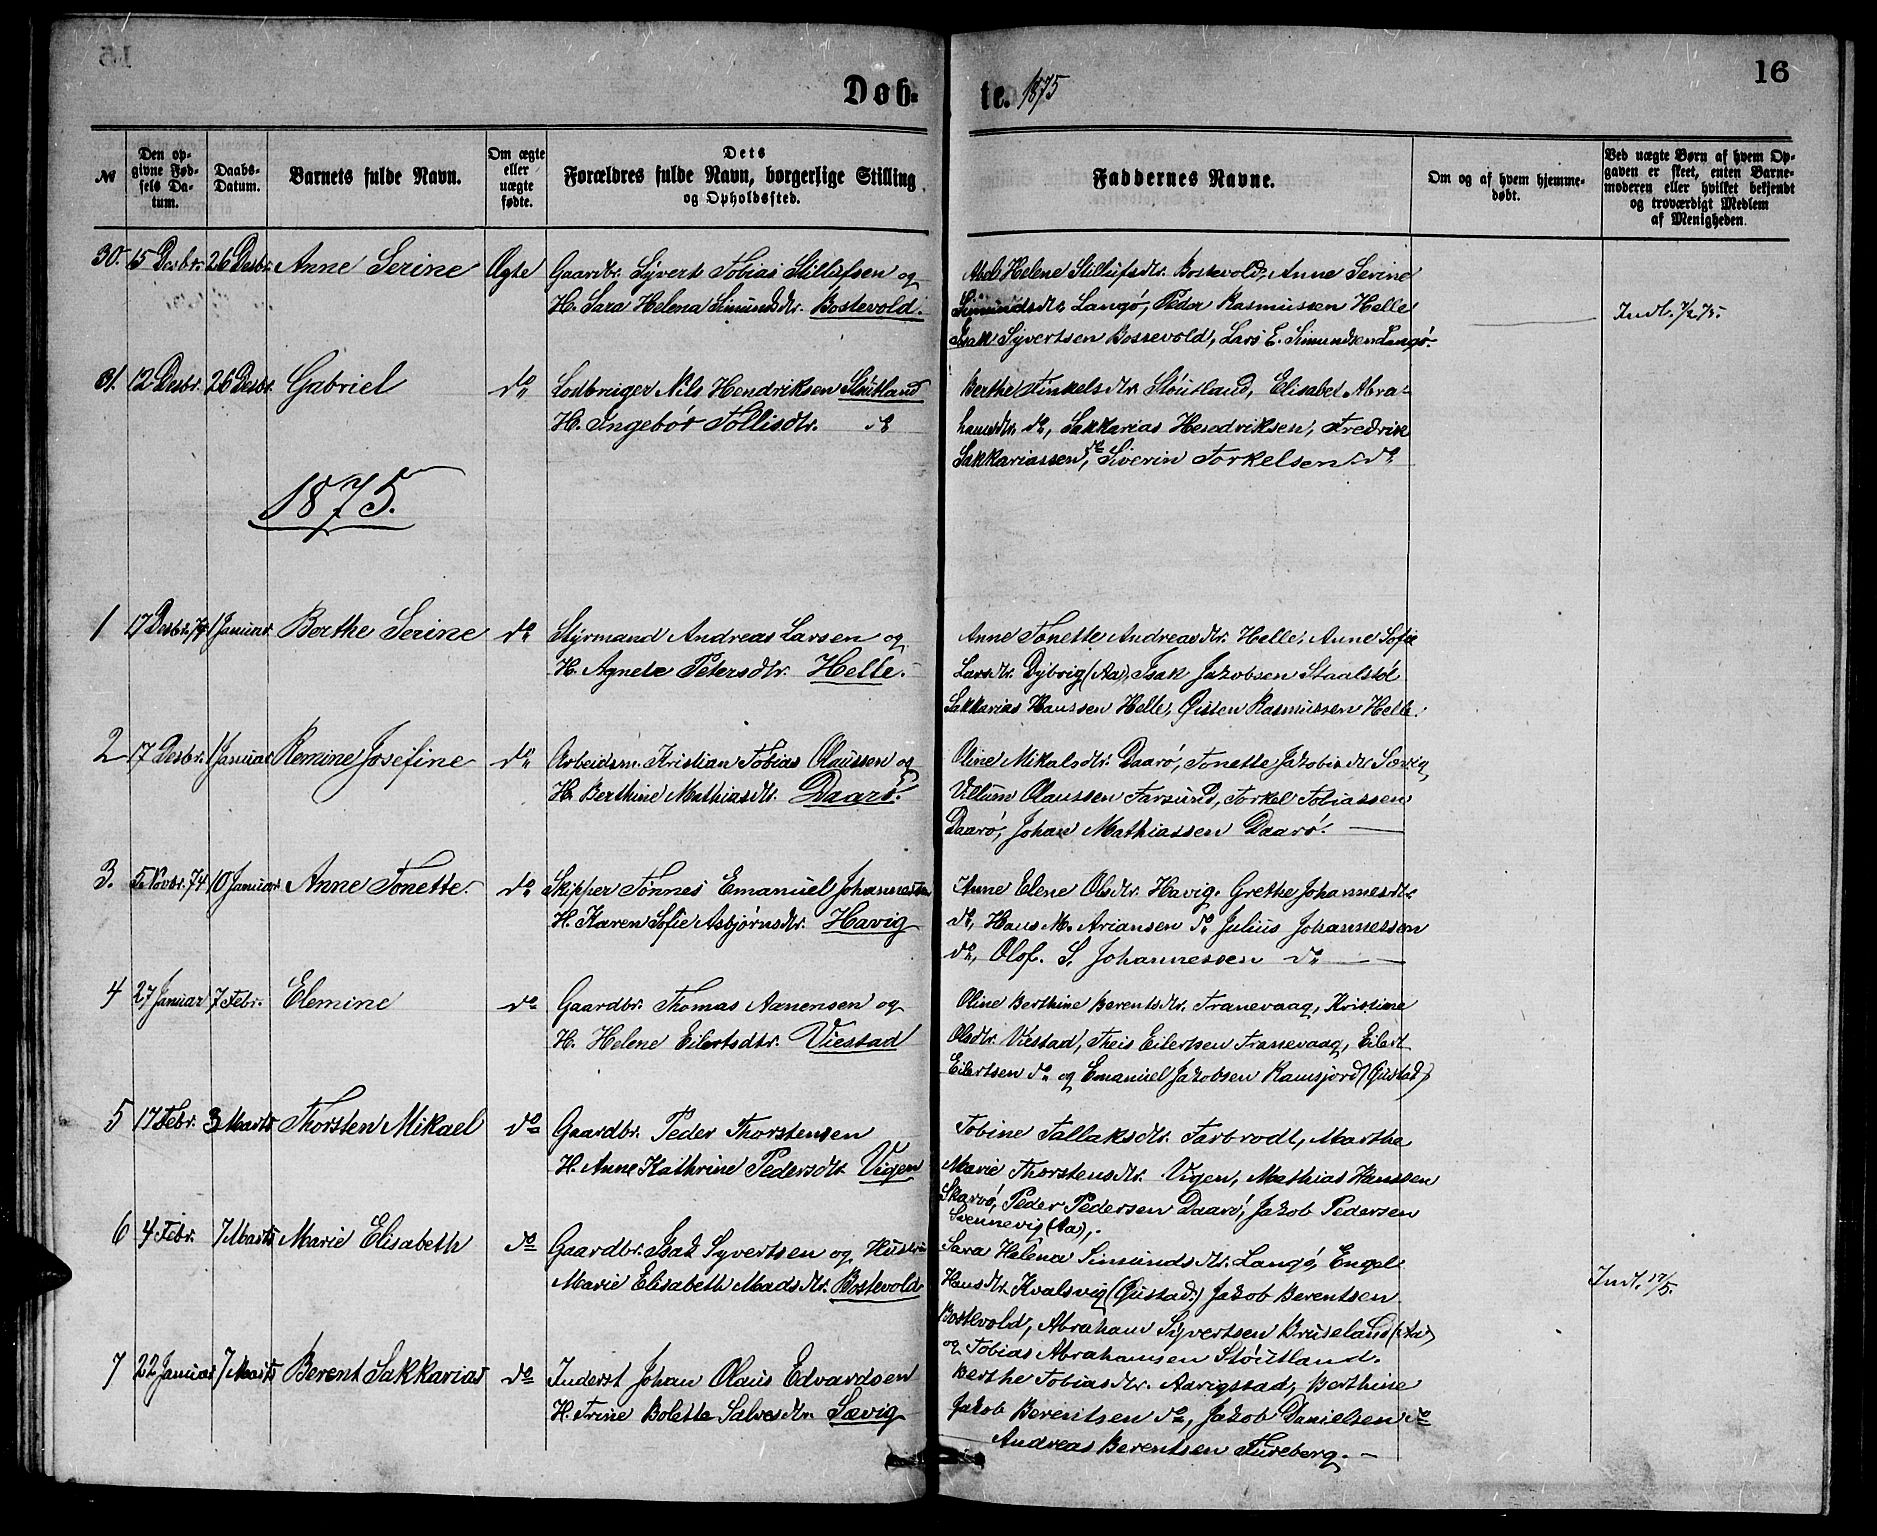 16
Døb-
te. 1875
№
Den op-
givne Fød-
sels Da-
tum.
Daabs-
Datum.
Barnets fulde Navn.
Om ægte
eller
uægte
fødte.
Dets
Forældres fulde Navn, borgerlige Stilling
og Opholdssted.
Faddernes Navne.
Om og af hvem hjemme-
døbt.
Ved uægte Børn af hvem Op-
gaven er skeet, enten Barne-
moderen eller hvilket bekjendt
og troværdigt Medlem
af Menigheden.
30. 15 Desbr. 26 Desbr. Anne Serine Ægte
Gaardbr. Syvert Tobias Stillufsen og
H. Sara Helena Simundsdtr. Bostevold.
Abel Helene Stillufsdtr. Bostevold, Anne Serine
Simundsdtr. Langø, Peder Rasmussen Helle
Isak Syvertsen Bossevold, Lars E. Simundsen Langø.
Indt. 7/2 75.
31. 12 Desbr. 26 Desbr. Gabriel do
Losbruger Nils Hendriksen Støutland
H. Ingebør Tollisdtr. do
Berthe Tinkelsdtr. Støutland, Elisabet Abra-
hamsdtr. do, Sakkarias Hendriksen, Fredrik
Sakkariassen, do Siverin Torkelsen do
1875.
1 17 Desbr. 74 1 Januar Berthe Serine do
Styrmand Andreas Larsen og
H. Agnete Petersdtr. Helle.
Anne Tonette Andreasdtr. Helle, Anne Sofie
Larsdtr. Dybvig (Aa), Isak Jakobsen Staalstøl
Sakkarias Hanssen Helle, Østen Rasmussen Helle.
2 17 Desbr. 1 Januar Remine Josefine do
Arbeidsm. Kristian Tobias Olaussen og
H. Berthine Mathiasdt. Daarø.
Oline Mikalsdtr. Daarø, Tonette Jakobsdtr. Sævig,
Villum Olaussen Farsund, Torkel Tobiassen
Daarø, Johan Mathiassen Daarø.
3. 5 Novbr. 74 10 Januar Anne Tonette. do
Skipper Tønnes Emanuel Johannessen
H. Karen Sofie Asbjørnsdtr. Havig
Anne Elene Olsdtr. Havig. Grethe Johannesdtr.
do, Hans M. Ariansen do Julius Johannessen
do, Olof. S. Johannessen do
4 27 Januar 7 Febr. Elemine do
Gaardbr. Thomas Aanensen og
H. Helene Eilertsdtr. Viestad
Oline Berthine Berentsdtr. Tranevaag, Kristine
Olsdtr. Viestad, Theis Eilertsen Tranevaag, Eilert
Eilertsen do og Emanuel Jakobsen Ramsjord (Øustad)
5 17 Febr. 3 Marts Thorsten Mikael do
Gaardbr. Peder Thorstensen
H. Anne Kathrine Pedersdtr. Vigen
Tobine Tallaksdtr. Farbrodt, Marthe
Marie Thorstensdtr. Vigen, Mathias Hanssen
Skarvø, Peder Pedersen Daarø, Jakob Pedersen
Svennevig (Aa),.
6 4 Febr. 7 Marts Marie Elisabeth do
Gaardbr. Isak Syvertsen og Hustru
Marie Elisabeth Madsdtr. Bostevold
Sara Helena Simundsdtr. Langø, Engel
Hansdtr. Kvalsvig (Øustad.) Jakob Berentsen
Bostevold, Abraham Syvertsen Bruseland (Aa)
og Tobias Abrahamsen Støutland.
Indt. 17/5.
7 22 Januar 7 Marts Berent Sakkarias do
Inderst Johan Olaus Edvardsen
H. Trine Bolette Salvesdtr. Sævig
Berthe Tobiasdtr. Aavigstad, Berthine
Jakob Berentsen do, Jakob Danielsen do
Andreas Berentsen Tureberg.